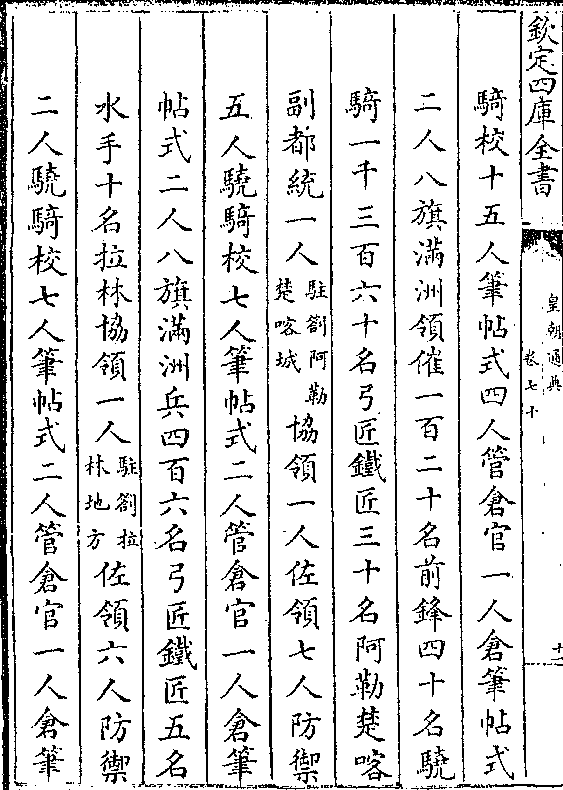 欽定四庫全書
皇朝通典
卷七十
十二
驍騎校十五人筆帖式四人管倉官一人倉筆帖式
二人八旗滿洲領催一百二十名前鋒四十名驍
騎一千三百六十名弓匠鐵匠三十名阿勒楚喀
副都統一人駐劄阿勒楚喀城協領一人佐領七人防禦
五人驍騎校七人筆帖式二人管倉官一人倉筆
帖式二人八旗滿洲兵四百六名弓匠鐵匠五名
水手十名拉林協領一人駐劄拉林地方佐領六人防禦
二人驍騎校七人筆帖式二人管倉官一人倉筆